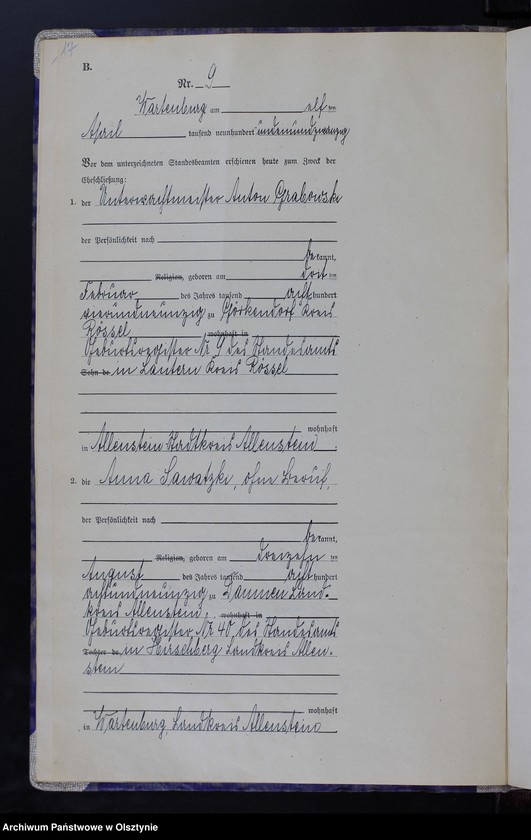 17
B.
Nr. 9
Wartenburg am elf ten
April tausend neunhundert undeinundzwanzig
Vor dem unterzeichneten Standesbeamten erschienen heute zum Zweck der
Eheschließung:
1. der Unterwachtmeister Anton Grabowski
der Persönlichkeit nach
bekannt,
Religion, geboren am drit ten
Februar des Jahres tausend acht hundert
vierundneunzig zu Görkendorf Kreis
Rössel wohnhaft in
Geburtsregister Nr 9 des Standesamts
Sohn de in Lautern Kreis Rössel
wohnhaft
in Allenstein Stadtkreis Allenstein.
2. die Anna Sawatzki, ohne Beruf,
der Persönlichkeit nach
bekannt,
Religion, geboren am dreizehn ten
August des Jahres tausend acht hundert
achtundneunzig zu Land-
kreis Allenstein, wohnhaft in
Geburtsregister Nr 40 des Standesamts
Tochter de in Hirschberg Landkreis Allen-
stein
wohnhaft
in Wartenburg, Landkreis Allenstein
Archiwum Państwowe w Olsztynie